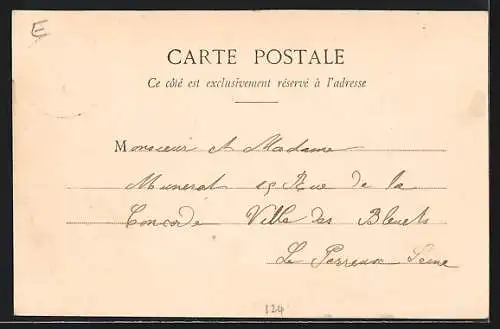 E
CARTE POSTALE
Ce côté est exclusivement réservé à l'adresse
Monsieur et Madame
Munerat 19 Rue de la
Concorde Villa des Bleuets
Le Perreux Seine
124